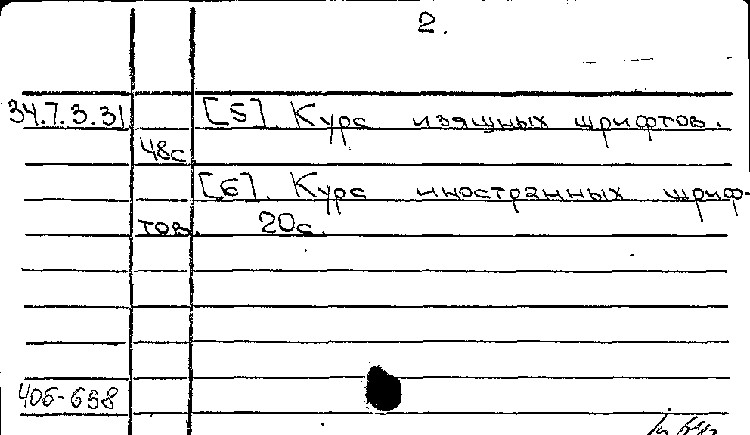 2.
34.7.3.31 [5]. Курс изящных шрифтов.
48с
[6]. Курс иностранных шриф-
тов. 20с.
406-698